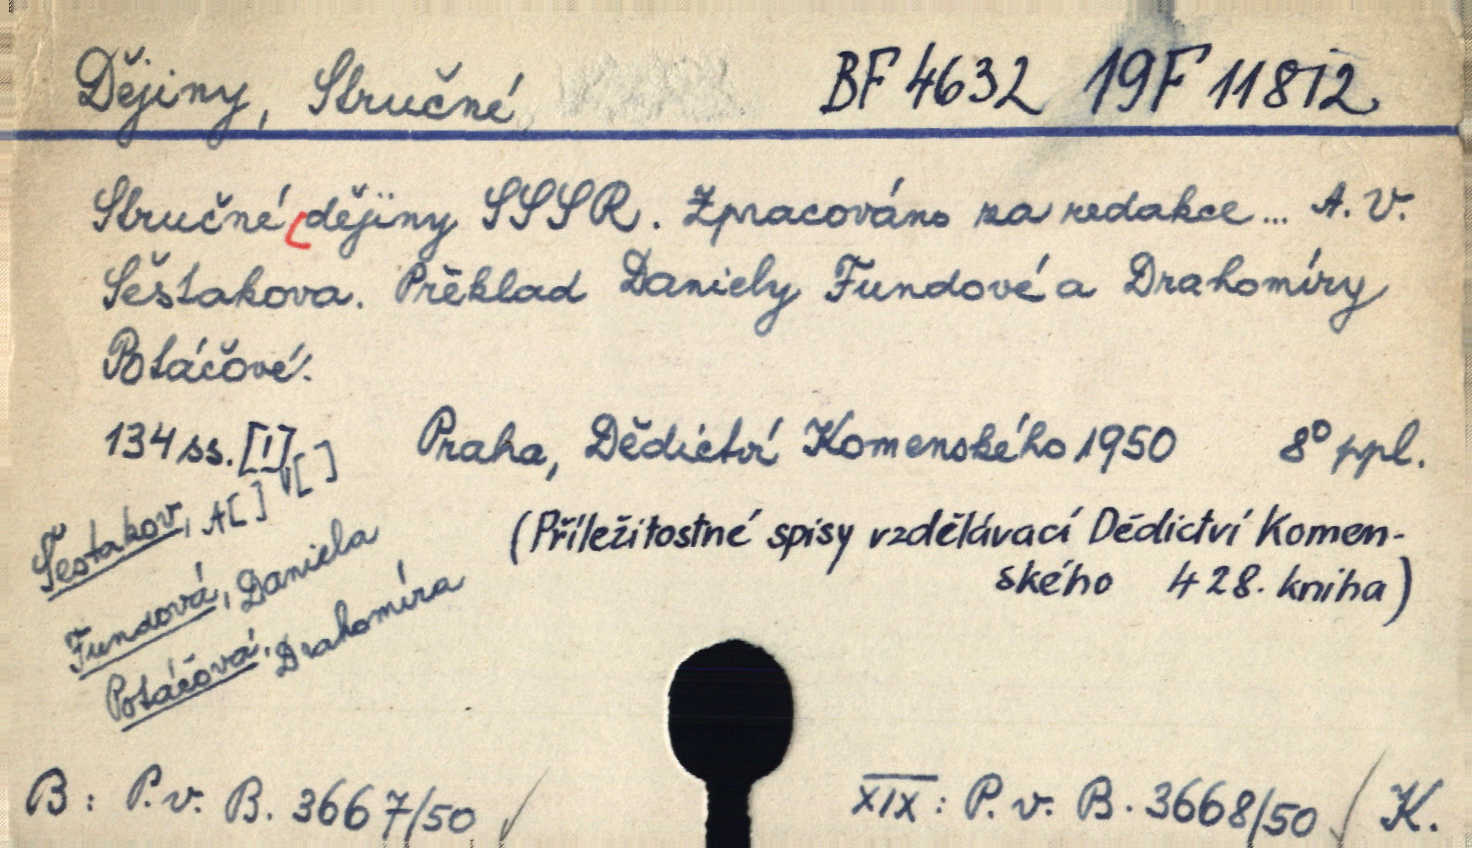 Dějiny, Stručné BF 4632 19F 11812
Stručné dějiny SSSR. Zpracováno za redakce... A. V.
Šěstakova. Překlad Daniely Fundové a Drahomíry
Potáčové.
134 ss. [1] Praha, Dědictví Komenského 1950 8° ppl.
(Příležitostné spisy vzdělávací Dědictví Komen-
ského 428. kniha)
Šestakov, A[ ] V[ ]
Fundová, Daniela
Potáčová, Drahomíra
B: P. v. B. 3667/50 XIX: P. v. B. 3668/50 K.